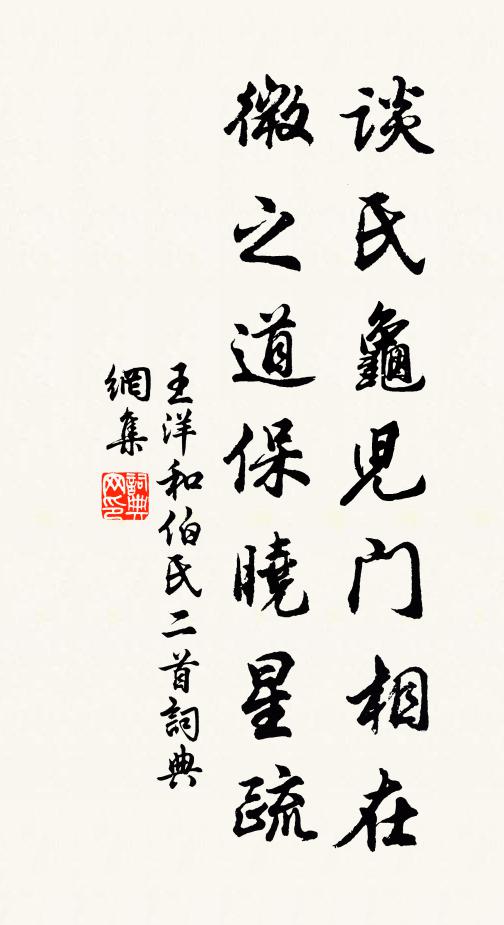 谈氏龜児门相在
微之道保曉星疏
王洋和伯氏二首詞典
網集
詞典
网印